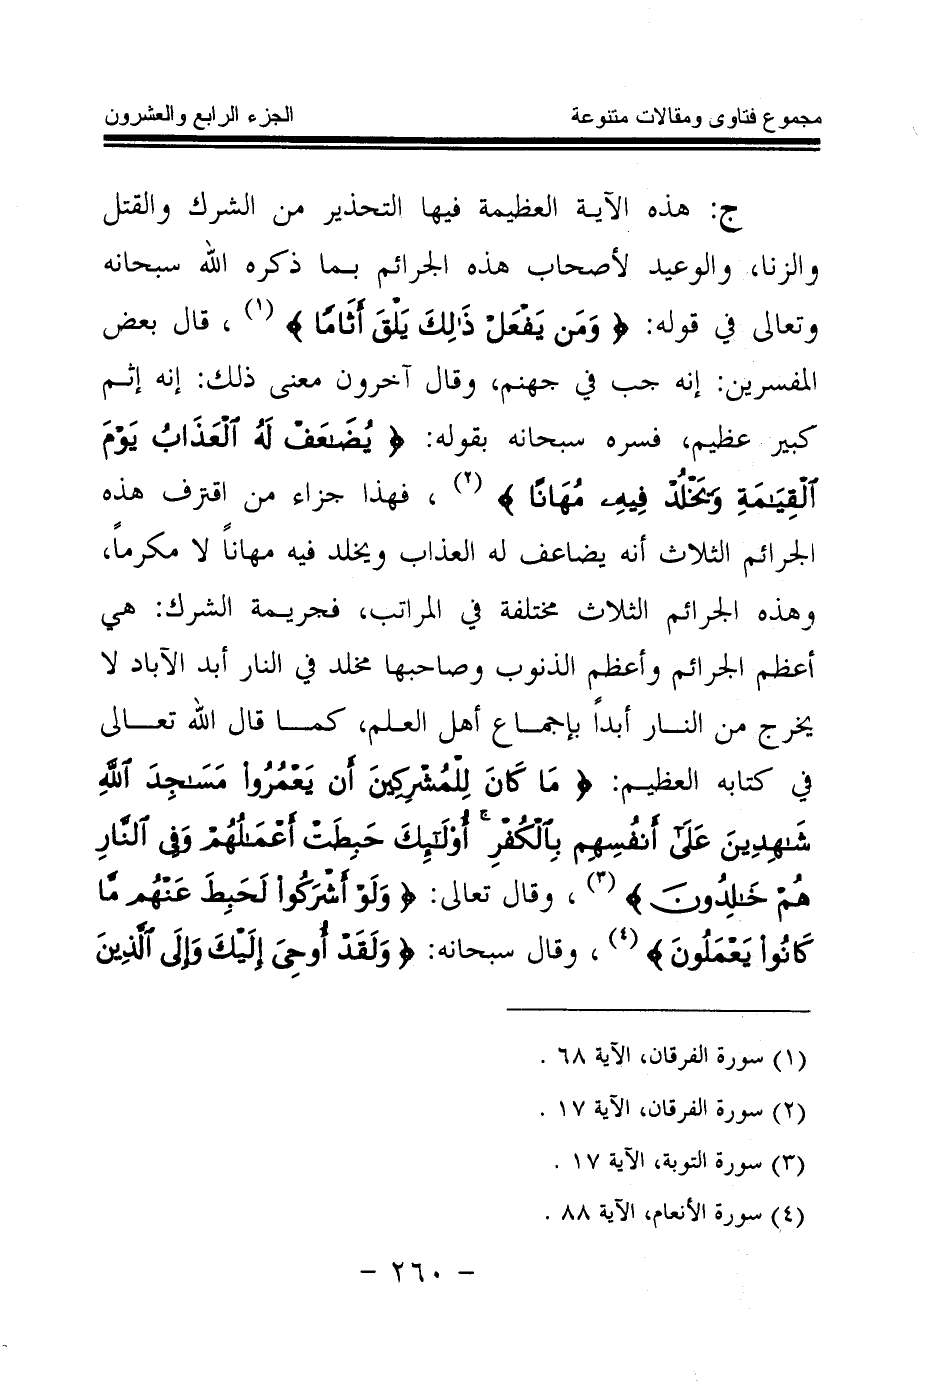 مجموع فتاوى ومقالات متنوعة الجزء الرابع والعشرون
ج: هذه الآية العظيمة فيها التحذير من الشرك والقتل
والزنا، والوعيد لأصحاب هذه الجرائم بما ذكره الله سبحانه
وتعالى في قوله: ﴿ وَمَن يَفْعَلْ ذَٰلِكَ يَلْقَ أَثَامًا ﴾ (١) ، قال بعض
المفسرين: إنه جب في جهنم، وقال آخرون معنى ذلك: إنه إثم
كبير عظيم، فسره سبحانه بقوله: ﴿ يُضَٰعَفْ لَهُ ٱلْعَذَابُ يَوْمَ
ٱلْقِيَٰمَةِ وَيَخْلُدْ فِيهِۦ مُهَانًا ﴾ (٢) ، فهذا جزاء من اقترف هذه
الجرائم الثلاث أنه يضاعف له العذاب ويخلد فيه مهاناً لا مكرماً،
وهذه الجرائم الثلاث مختلفة في المراتب، فجريمة الشرك: هي
أعظم الجرائم وأعظم الذنوب وصاحبها مخلد في النار أبد الآباد لا
يخرج من النار أبداً بإجماع أهل العلم، كما قال الله تعالى
في كتابه العظيم: ﴿ مَا كَانَ لِلْمُشْرِكِينَ أَن يَعْمُرُوا۟ مَسَٰجِدَ ٱللَّهِ
شَٰهِدِينَ عَلَىٰٓ أَنفُسِهِم بِٱلْكُفْرِ ۚ أُو۟لَٰٓئِكَ حَبِطَتْ أَعْمَٰلُهُمْ وَفِى ٱلنَّارِ
هُمْ خَٰلِدُونَ ﴾ (٣) ، وقال تعالى: ﴿ وَلَوْ أَشْرَكُوا۟ لَحَبِطَ عَنْهُم مَّا
كَانُوا۟ يَعْمَلُونَ ﴾ (٤) ، وقال سبحانه: ﴿ وَلَقَدْ أُوحِىَ إِلَيْكَ وَإِلَى ٱلَّذِينَ
(١) سورة الفرقان، الآية ٦٨ .
(٢) سورة الفرقان، الآية ١٧ .
(٣) سورة التوبة، الآية ١٧ .
(٤) سورة الأنعام، الآية ٨٨ .
– ٢٦٠ –